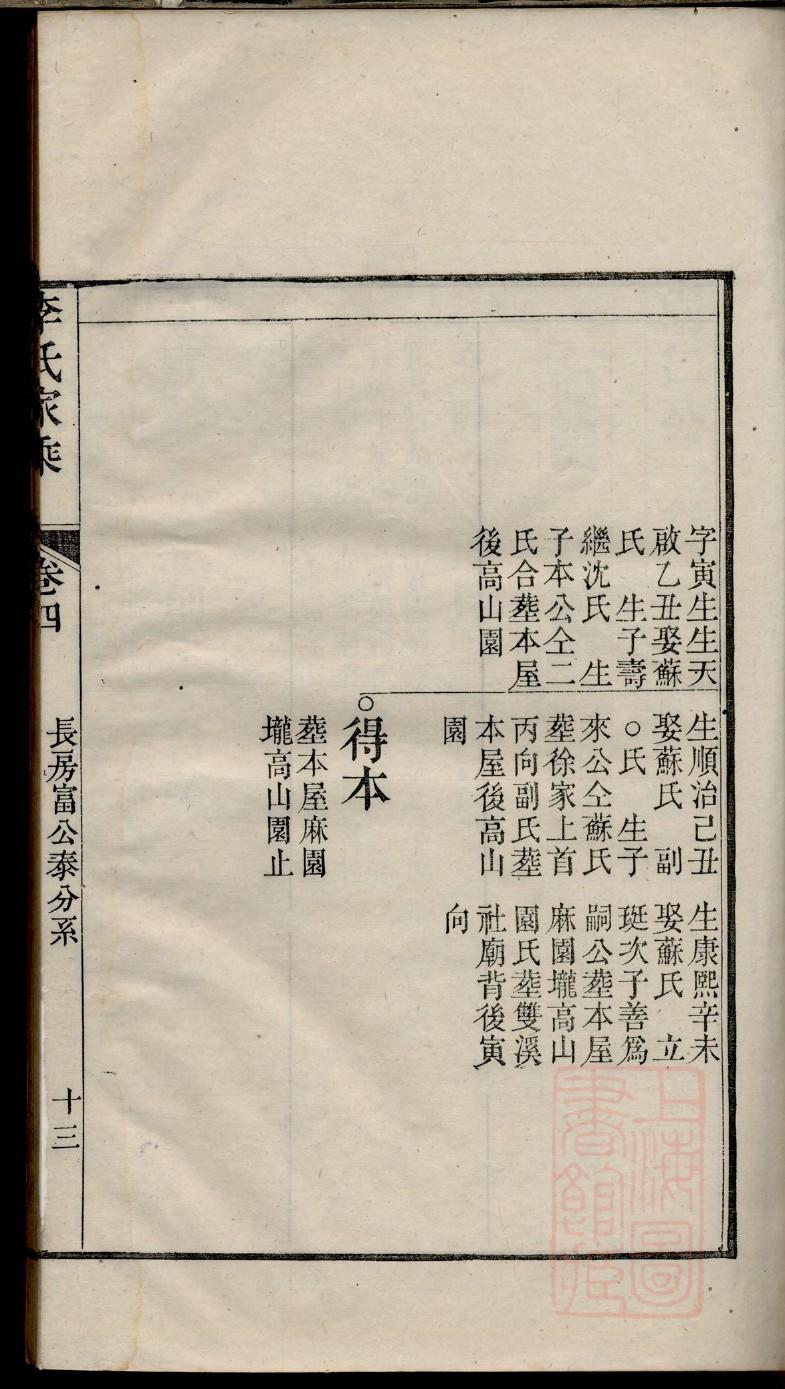 字寅生生天
啟乙丑娶蘇
氏　生子壽
繼沈氏　生
子本公仝二
氏合塟本屋
後高山園
生順治己丑
娶蘇氏　副
○氏　生子
來公仝蘇氏
塟徐家上首
丙向副氏塟
本屋後高山
園
生康熙辛未
娶蘇氏　立
珽次子善爲
嗣公塟本屋
麻園壠高山
園氏塟雙溪
社廟背後寅
向
○得本
塟本屋麻園
壠高山園止
李氏家乘
卷四
長房富公泰分系
十三
上海圖
書館藏